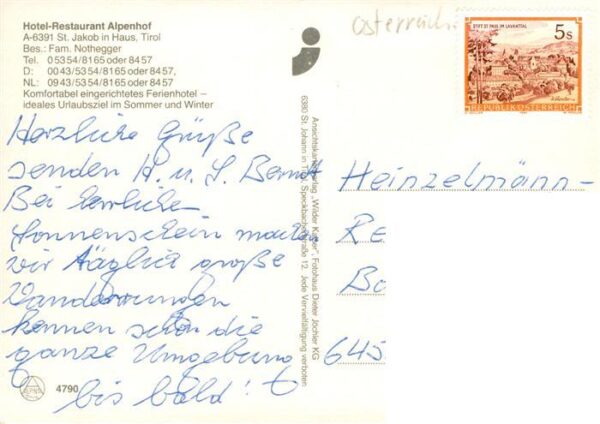 Hotel-Restaurant Alpenhof
A-6391 St. Jakob in Haus, Tirol
Bes.: Fam. Nothegger
Tel. 0 53 54/81 65 oder 84 57
D: 00 43/53 54/81 65 oder 84 57,
NL: 09 43/53 54/81 65 oder 84 57
Komfortabel eingerichtetes Ferienhotel –
ideales Urlaubsziel im Sommer und Winter
Herzliche Grüße
senden H. u. S. Berndt
Bei herrlichem
Sonnenschein machen
wir täglich große
Wanderungen
kennen schon die
ganze Umgebung
bis bald!
4790
Ansichtskartenverlag „Wilder Kaiser", Fotohaus Dieter Jöchler KG
6380 St. Johann in Tirol, Speckbacherstraße 12. Jede Vervielfältigung verboten
Österreich
STIFT ST. PAUL IM LAVANTTAL
5 S
REPUBLIK ÖSTERREICH
Heinzelmann-
Re
Ba
645